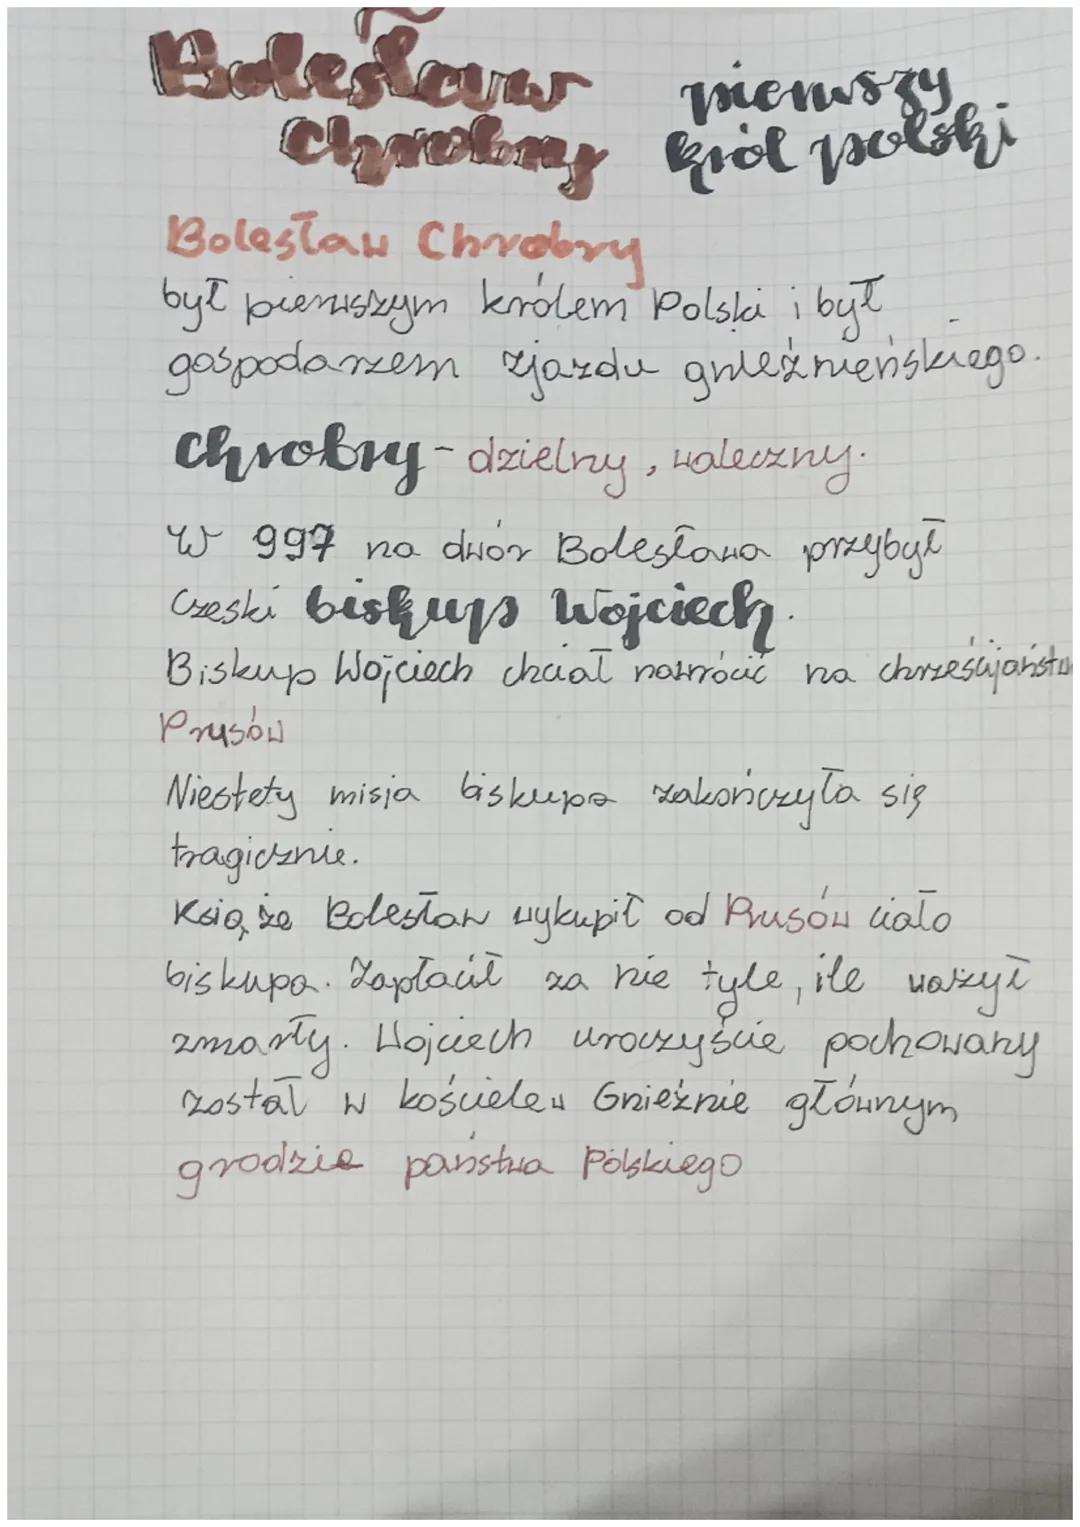 Bolesław pierwszy
Chrobry król polski
Bolesław Chrobry
był pierwszym królem Polski i był
gospodarzem zjazdu gnieźnieńskiego.
Chrobry - dzielny, waleczny.
W 997 na dwór Bolesława przybył
Czeski biskup Wojciech.
Biskup Wojciech chciał nawrócić na chrześcijaństw
Prusów
Niestety misja biskupa zakończyła się
tragicznie.
Książe Bolesław wykupił od Prusów ciało
biskupa. Zapłacił za nie tyle, ile ważył
zmarły. Wojciech uroczyście pochowany
został w kościele w Gnieźnie głównym
grodzie państwa Polskiego